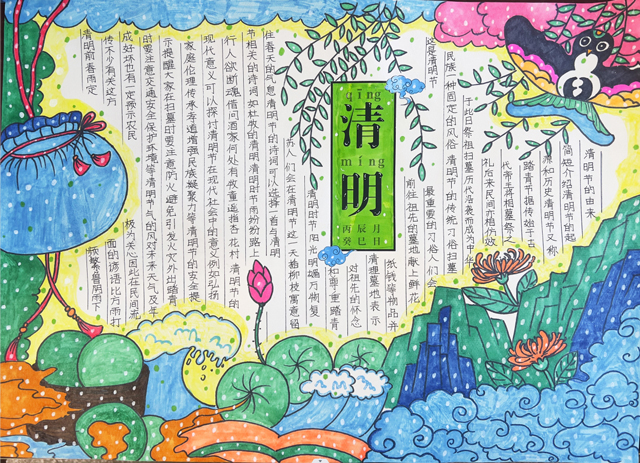 清明节的由来
简短介绍清明节的起
源和历史清明节又称
踏青节据传始于古
代帝王将相墓祭之
礼后来民间亦相仿效
于此日祭祖扫墓历代沿袭而成为中华
民族一种固定的风俗 清明节的传统习俗扫墓
这是清明节
最重要的习俗人们会
前往祖先的墓地献上鲜花
纸钱等物品并
清理墓地表示
对祖先的怀念
和尊重踏青
qīng
清
míng
明
丙辰月
癸巳日
清明时节 阳光明媚万物复
苏人们会在清明节这一天插柳枝寓意怪
住春天的气息 清明节的诗词可以选择一首与清明
节相关的诗词如杜牧的清明清明时节雨纷纷路上
行人欲断魂借问酒家何处有牧童遥指杏花村 清明节的
现代意义可以探讨清明节在现代社会中的意义例如弘扬
家庭伦理传承孝道增强民族凝聚力等清明节的安全提
示提醒大家在扫墓时要注意防火避免引发火灾外出踏青
时要注意交通安全保护环境等清明节气的风对未来天气及年
成好坏也有一定预示农民
极为关心因此在民间流
传不少有关这方
面的谚语比方雨打
清明前春雨定
频繁